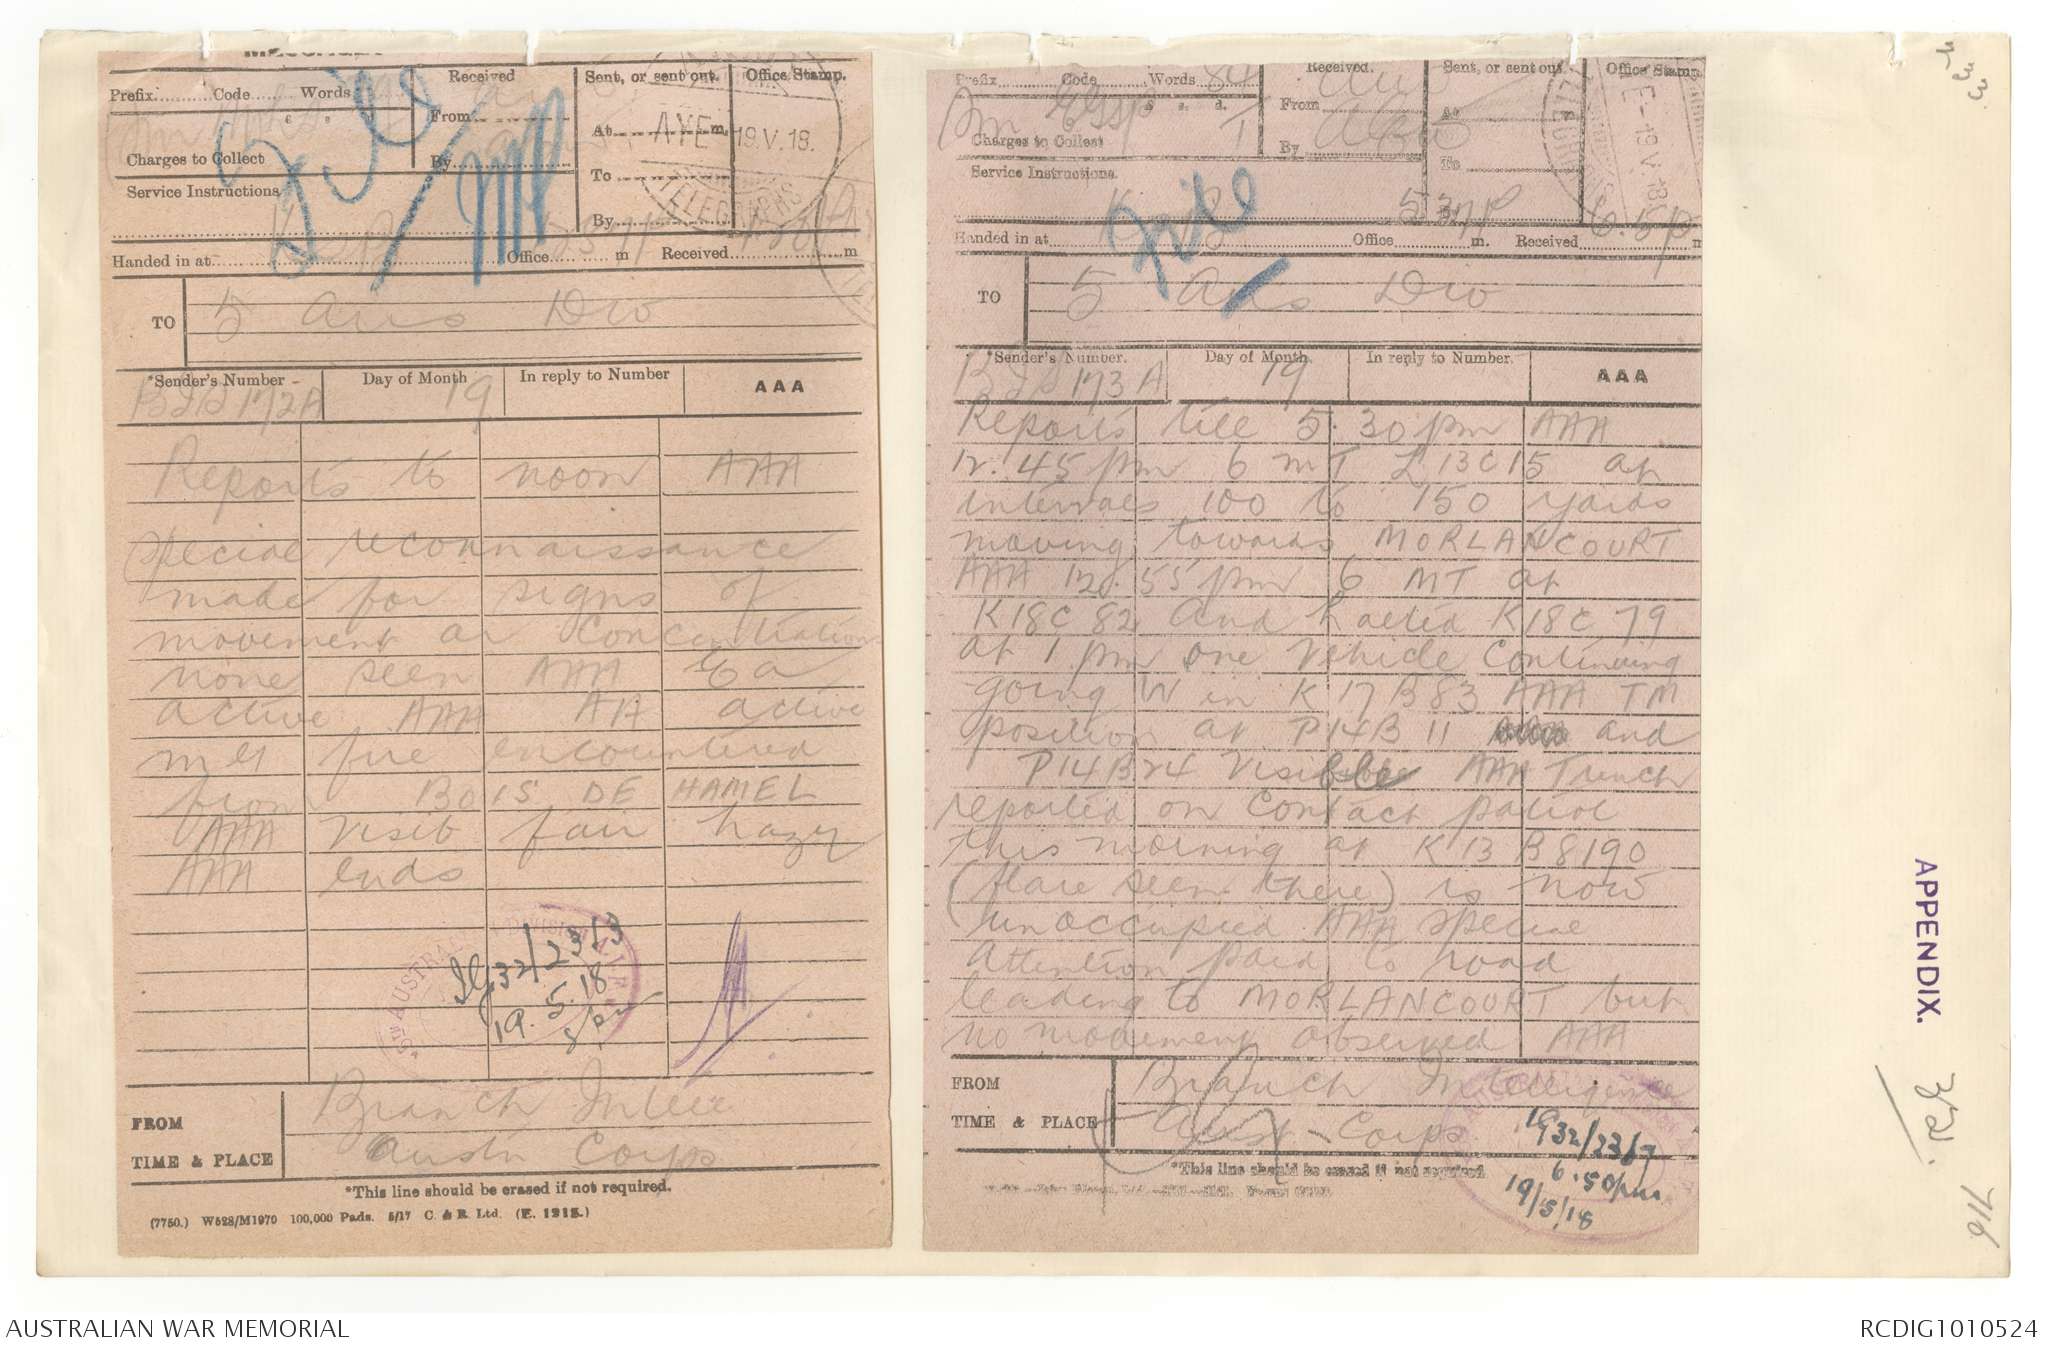 Prefix Code Words
Received
Sent, or sent out.
Office Stamp.
£ s. d.
From
At m.
AYE 19.V.18.
Charges to Collect
By
To
Service Instructions
TELEGRAPHS
By
Handed in at Office m Received m
TO 5 Aus Div
*Sender's Number Day of Month In reply to Number AAA
BIS 172A 19
Reports to noon AAA
special reconnaissance
made for signs of
movement or concentration
none seen AAA EA
active AAA AA active
MG fire encountered
from BOIS DE HAMEL
AAA visib fair hazy
AAA ends
5TH AUSTRALIAN DIVISION
Ig 32/2313
19.5.18
FROM Branch Intell
TIME & PLACE Austn Corps
*This line should be erased if not required.
(7750.) W528/M1970 100,000 Pads. 5/17 C. & R. Ltd. (E. 1213.)
Prefix Code Words 84
Received.
Sent, or sent out
Office Stamp.
£ s. d.
From
At
Charges to Collect
By
To
19.V.18
Service Instructions.
File
Handed in at Office m. Received m
TO 5 Aus Div
*Sender's Number. Day of Month. In reply to Number. AAA
BIS 173A 19
Reports till 5.30 pm AAA
12.45 pm 6 MT L13C15 at
intervals 100 to 150 yards
moving towards MORLANCOURT
AAA 12.55 pm 6 MT at
K18C 82 and halted K18C 79
at 1 pm one vehicle continuing
going W in K17B83 AAA TM
position at P14B 11 and
P14B24 Visible AAA Trench
reported on contact patrol
this morning at K13 B8190
(flare seen there) is now
unoccupied AAA special
attention paid to road
leading to MORLANCOURT but
no movement observed AAA
FROM Branch Intelligence
TIME & PLACE Aust Corps
*This line should be erased if not required
Ig 32/2317
6.50pm
19/5/18
233
APPENDIX.
32.
716
AUSTRALIAN WAR MEMORIAL
RCDIG1010524